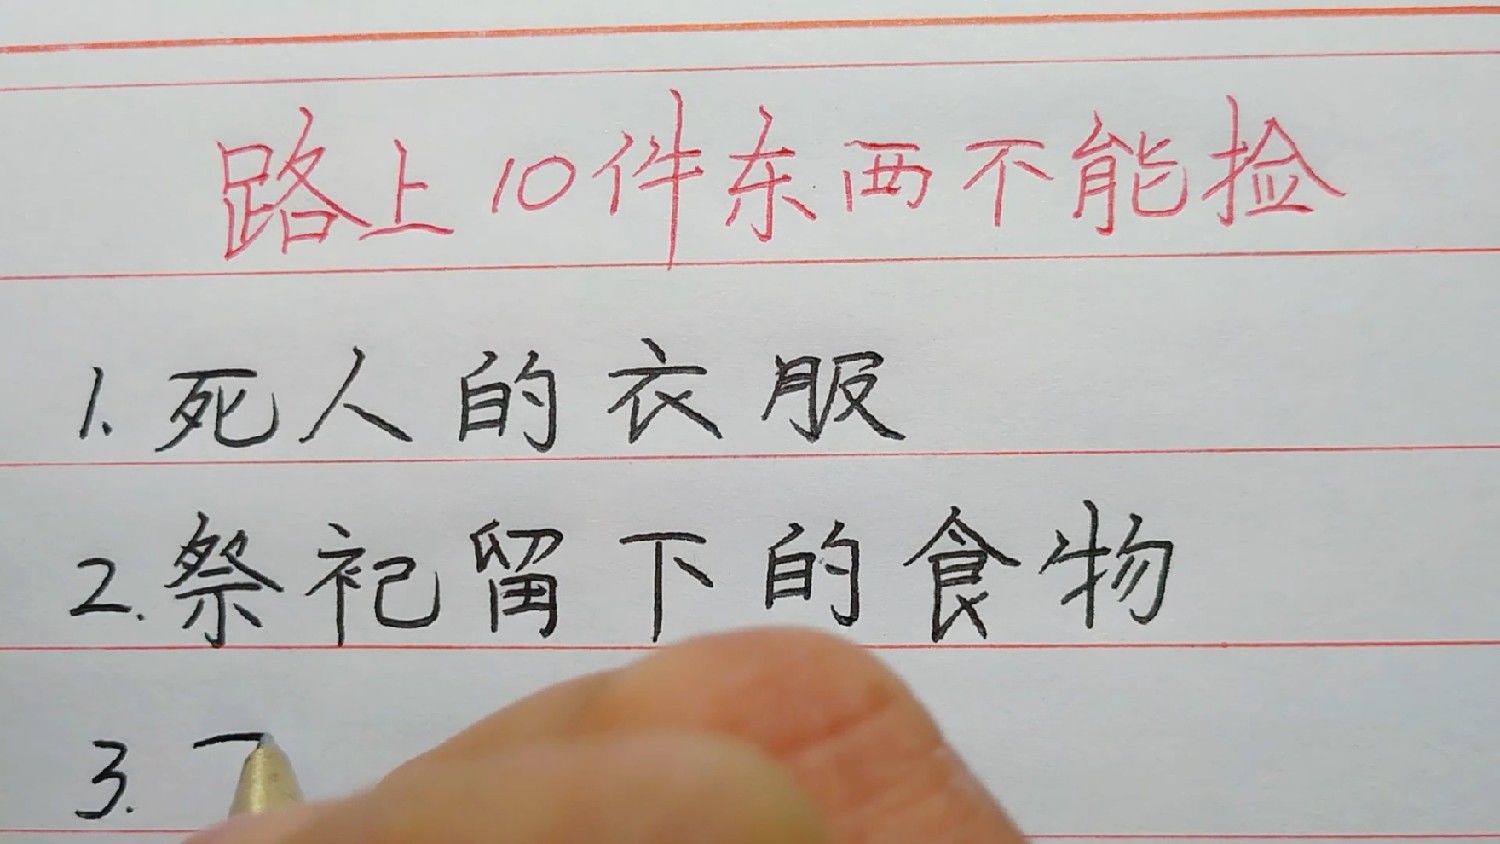 路上10件东西不能捡
1. 死人的衣服
2. 祭祀留下的食物
3.